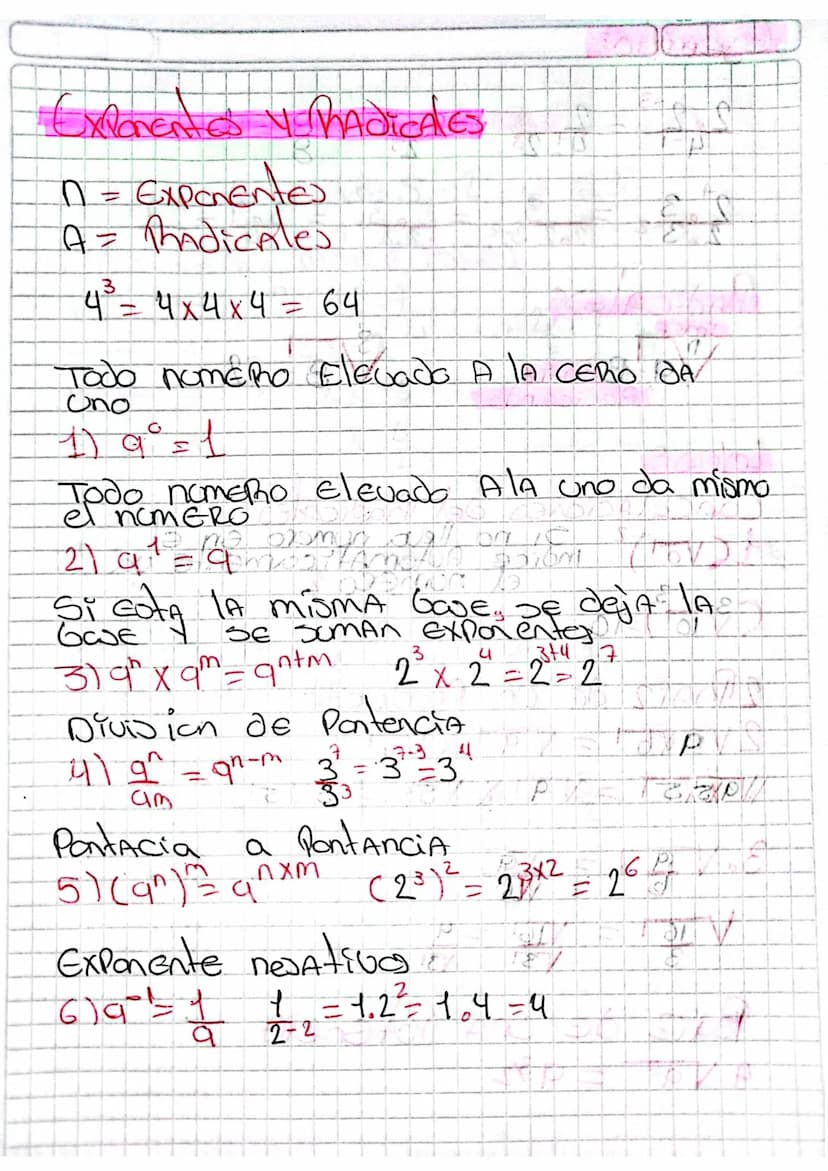 Exponentes y Radicales
n = Exponentes
A = Radicales
4³ = 4 x 4 x 4 = 64
Todo numero Elevado A la CERO dA
uno
1) a⁰ = 1
Todo numero Elevado A la uno da mismo
el numERO
2) a¹ = a
Si esta la misma base, se deja la
base y se suman exponentes
3) aⁿ x aᵐ = aⁿ⁺ᵐ 2³ x 2⁴ = 2³⁺⁴ = 2⁷
Division de Pontencia
4) aⁿ/am = aⁿ⁻ᵐ 3⁷/3³ = 3⁷⁻³ = 3⁴
Pontacia a Pontancia
5) (aⁿ)ᵐ = aⁿˣᵐ (2³)² = 2³ˣ² = 2⁶
Exponente negativo
6) a⁻¹ = 1/a 1/2⁻² = 1.2² = 1.4 = 4